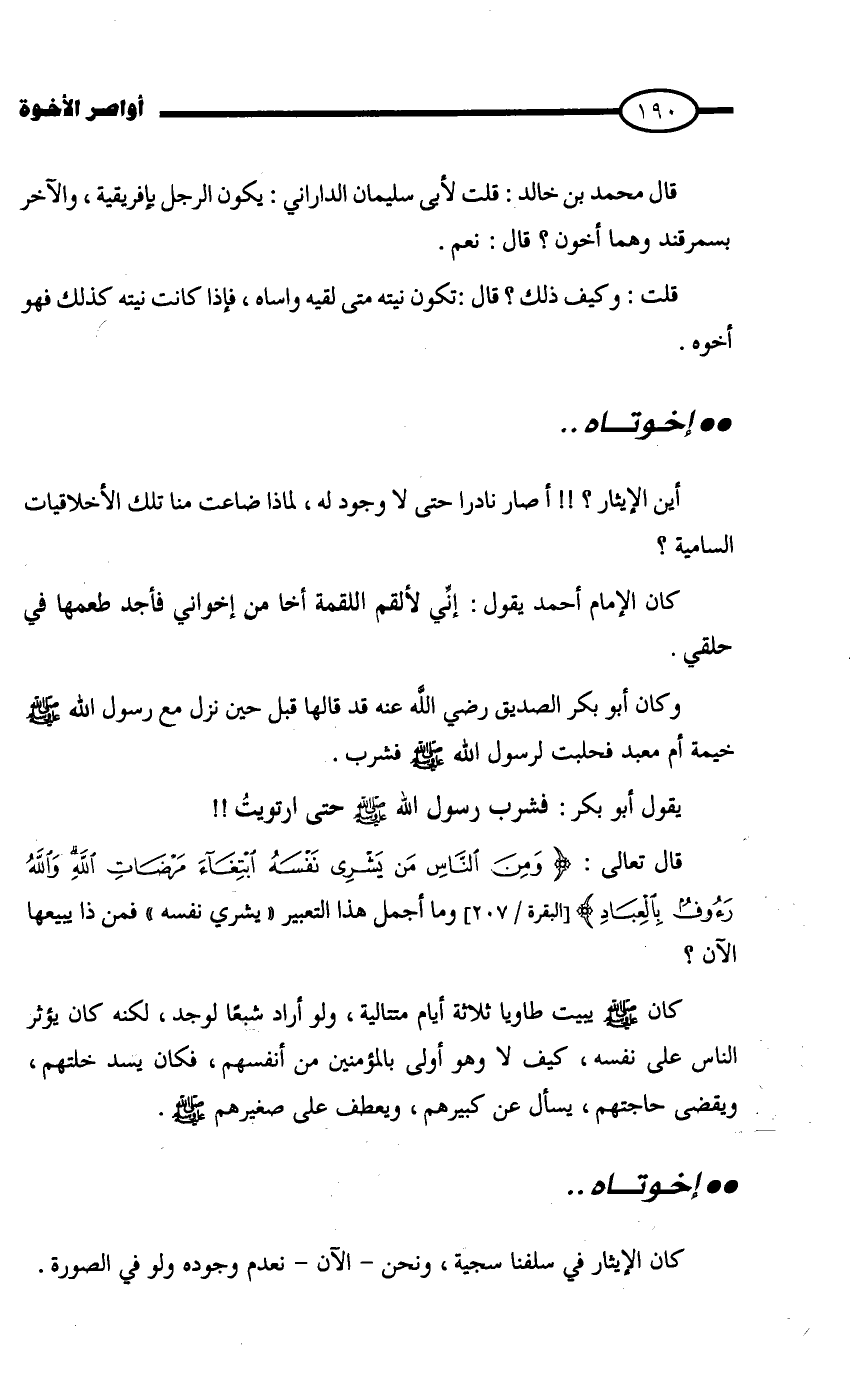 أواصر الأخوة ١٩٠
قال محمد بن خالد : قلت لأبى سليمان الداراني : يكون الرجل بإفريقية ، والآخر
بسمرقند وهما أخون ؟ قال : نعم .
قلت : وكيف ذلك ؟ قال :تكون نيته متى لقيه واساه ، فإذا كانت نيته كذلك فهو
أخوه .
●● إخـوتـــاه ..
أين الإيثار ؟ !! أ صار نادرا حتى لا وجود له ، لماذا ضاعت منا تلك الأخلاقيات
السامية ؟
كان الإمام أحمد يقول : إنِّي لألقم اللقمة أخا من إخواني فأجد طعمها في
حلقي .
وكان أبو بكر الصديق رضي اللَّه عنه قد قالها قبل حين نزل مع رسول الله ﷺ
خيمة أم معبد فحلبت لرسول الله ﷺ فشرب .
يقول أبو بكر : فشرب رسول الله ﷺ حتى ارتويتُ !!
قال تعالى : ﴿ وَمِنَ ٱلنَّاسِ مَن يَشْرِى نَفْسَهُ ٱبْتِغَآءَ مَرْضَاتِ ٱللَّهِۗ وَٱللَّهُ
رَءُوفٌۢ بِٱلْعِبَادِ ﴾ [البقرة / ٢٠٧] وما أجمل هذا التعبير « يشري نفسه » فمن ذا يبيعها
الآن ؟
كان ﷺ يبيت طاويا ثلاثة أيام متتالية ، ولو أراد شبعًا لوجد ، لكنه كان يؤثر
الناس على نفسه ، كيف لا وهو أولى بالمؤمنين من أنفسهم ، فكان يسد خلتهم ،
ويقضى حاجتهم ، يسأل عن كبيرهم ، ويعطف على صغيرهم ﷺ .
●● إخـوتـــاه ..
كان الإيثار في سلفنا سجية ، ونحن – الآن – نعدم وجوده ولو في الصورة .